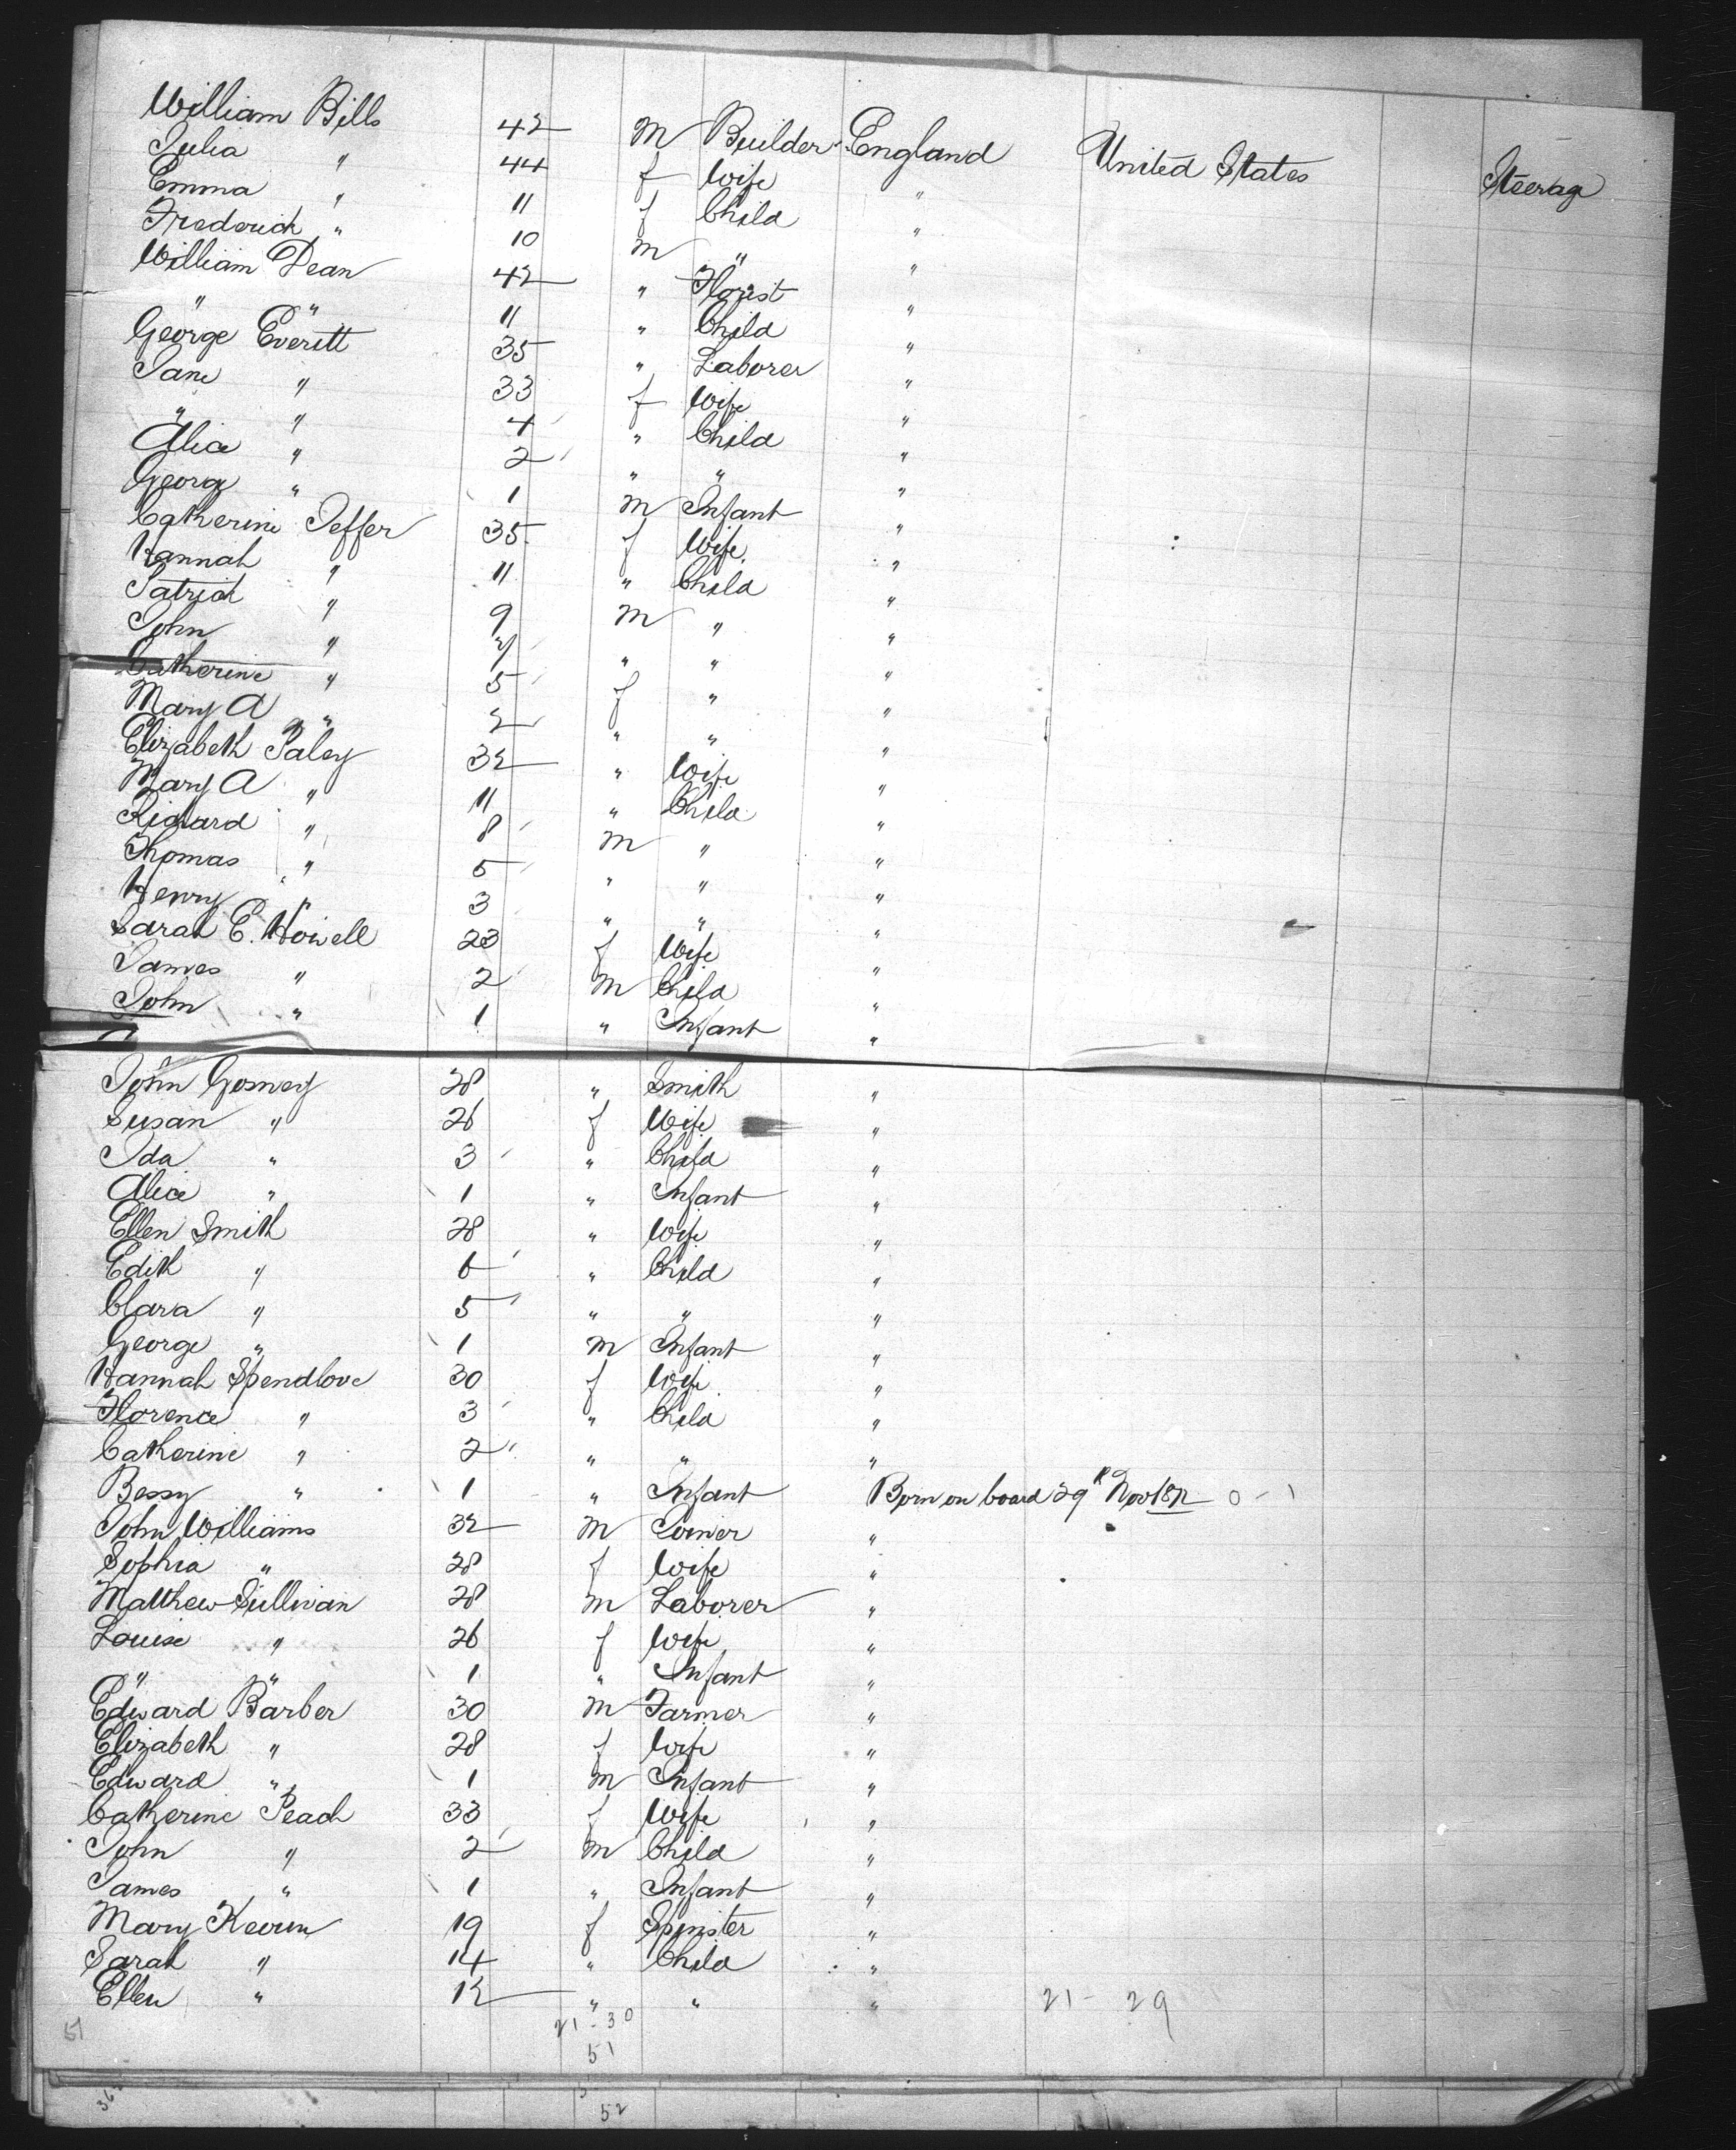 William Bills 42 M Builder England United States Steerage
Julia " 44 f Wife "
Emma " 11 f Child "
Frederick " 10 m " "
William Dean 42 " Florist "
" " 11 " Child "
George Everitt 35 " Laborer "
Jane " 33 f Wife "
" " 4 " Child "
Alice " 2 " " "
George " 1 M Infant "
Catherine Jeffer 35 f Wife "
Hannah " 11 " Child "
Patrick " 9 m " "
John " 7 " " "
Catherine " 5 f " "
Mary A " 2 " " "
Elizabeth Paley 32 " Wife "
Mary A " 11 " Child "
Richard " 8 m " "
Thomas " 5 " " "
Henry " 3 " " "
Sarah E. Howell 23 f Wife "
James " 2 m Child "
John " 1 " Infant "
John Gosney 28 " Smith "
Susan " 26 f Wife "
Ida " 3 " Child "
Alice " 1 " Infant "
Ellen Smith 28 " Wife "
Edith " 6 " Child "
Clara " 5 " " "
George " 1 m Infant "
Hannah Spendlove 30 f Wife "
Florence " 3 " Child "
Catherine " 2 " " "
Bessy " 1 " Infant Born on board 29th Nov 0 - 1
John Williams 32 m Joiner "
Sophia " 28 f Wife "
Matthew Sullivan 28 m Laborer "
Louise " 26 f Wife "
" " 1 " Infant "
Edward Barber 30 m Farmer "
Elizabeth " 28 f Wife "
Edward " 1 m Infant "
Catherine Peach 33 f Wife "
John " 2 m Child "
James " 1 " Infant "
Mary 19 f Spinster "
Sarah " 14 " Child "
Ellen " 12 " " " 21 - 29
51 21 - 30
51
52